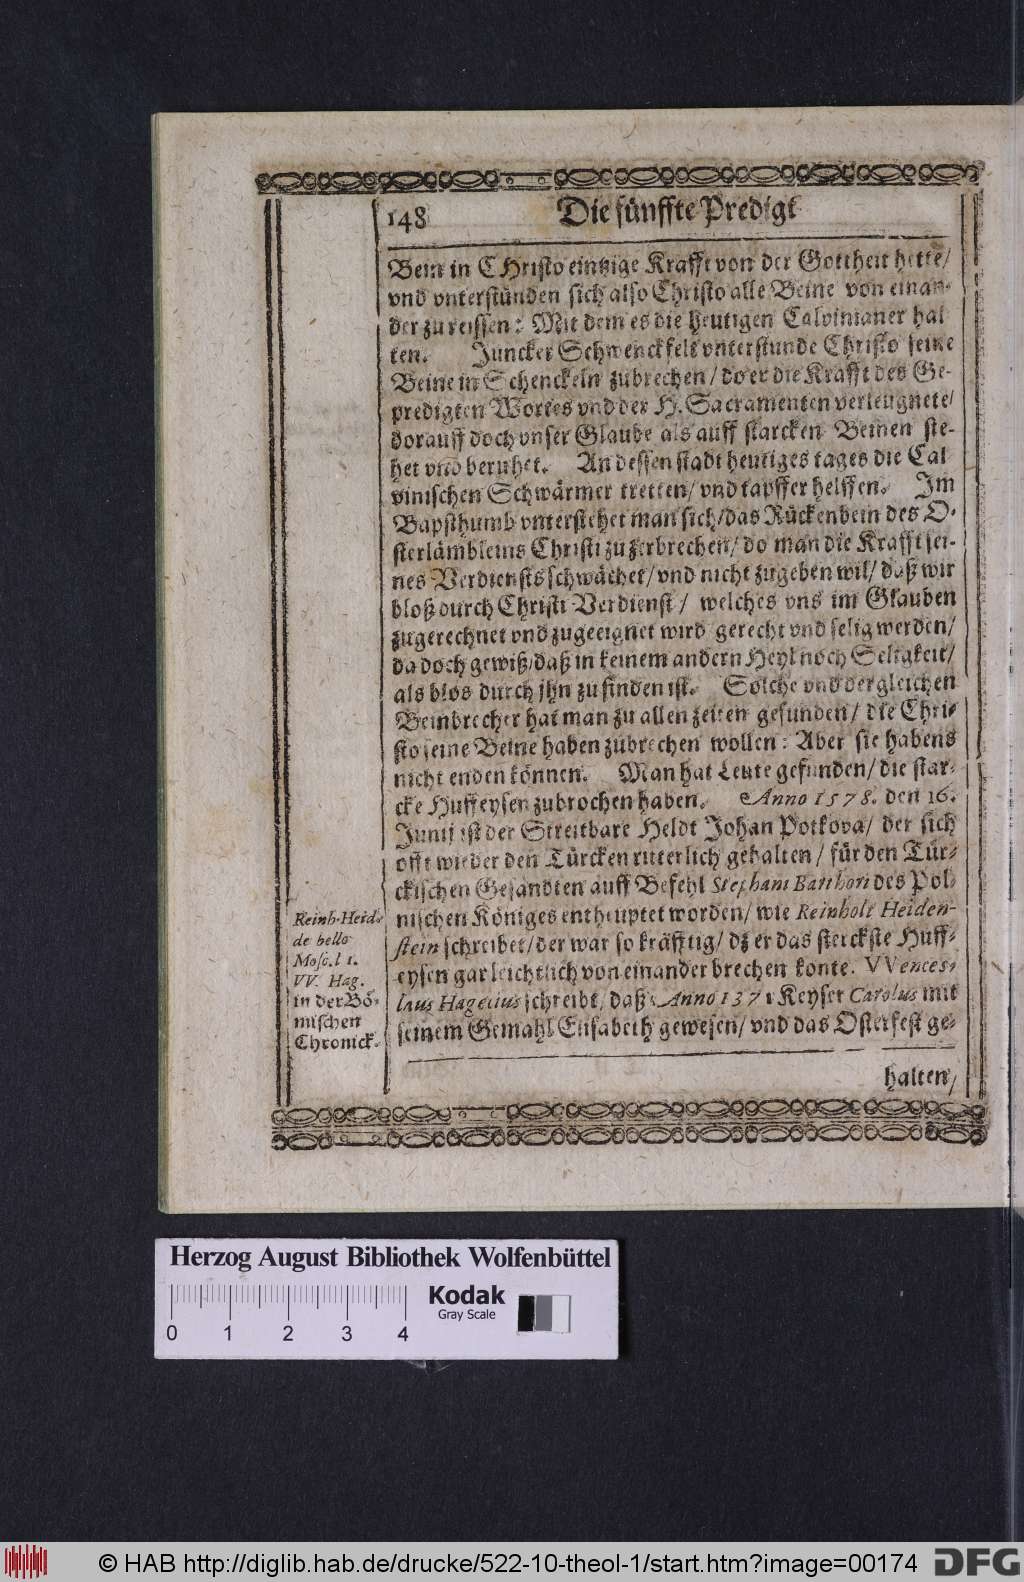 148
Die fünffte Predigt
Bein in CHristo eintzige Krafft von der Gottheit hette/
vnd vnterstünden sich also Christo alle Beine von einan-
der zu reissen: Mit dem es die heutigen Calvinianer hal
ten. Juncker Schwenckfelt vnterstunde Christo seine
Beine in Schenckeln zubrechen/ do er die Krafft des Ge-
predigten Wortes vnd der H. Sacramenten verleugnete/
dorauff doch vnser Glaube als auff starcken Beinen ste-
het vnd beruhet. An dessen stadt heutiges tages die Cal
vinischen Schwärmer tretten/ vnd tapffer helffen. Im
Bapsthumb vnterstehet man sich/ das Rückenbein des O-
sterlämbleins Christi zu zerbrechen/ do man die Krafft sei-
nes Verdiensts schwächet/ vnd nicht zugeben wil/ daß wir
bloß durch Christi Verdienst/ welches vns im Glauben
zugerechnet vnd zugeeignet wird gerecht vnd selig werden/
da doch gewiß/ daß in keinem andern Heyl noch Seligkeit/
als blos durch jhn zu finden ist. Solche vnd dergleichen
Beinbrecher hat man zu allen zeiten gefunden/ die Chri-
sto seine Beine haben zubrechen wollen: Aber sie habens
nicht enden können. Man hat Leute gefunden/ die star-
cke Huffeysen zubrochen haben. Anno 1578. den 16.
Junij ist der Streitbare Heldt Johan Potkova/ der sich
offt wieder den Türcken ritterlich gehalten/ für den Tür-
ckischen Gesandten auff Befehl Stephani Batthori des Pol-
nischen Königes entheuptet worden/ wie Reinholt Heiden-
stein schreibet/ der war so kräfftig/ dz er das sterckste Huff-
eysen gar leichtlich von einander brechen konte. VVences-
laus Hagecius schreibt/ daß Anno 1371 Keyser Carolus mit
seinem Gemahl Elisabeth gewesen/ vnd das Osterfest ge-
halten/
Reinh. Heid.
de bello
Mosc. l 1.
VV. Hag.
in der Bö-
mischen
Chronick.
Herzog August Bibliothek Wolfenbüttel
Kodak
Gray Scale
0 1 2 3 4
© HAB http://diglib.hab.de/drucke/522-10-theol-1/start.htm?image=00174
DFG